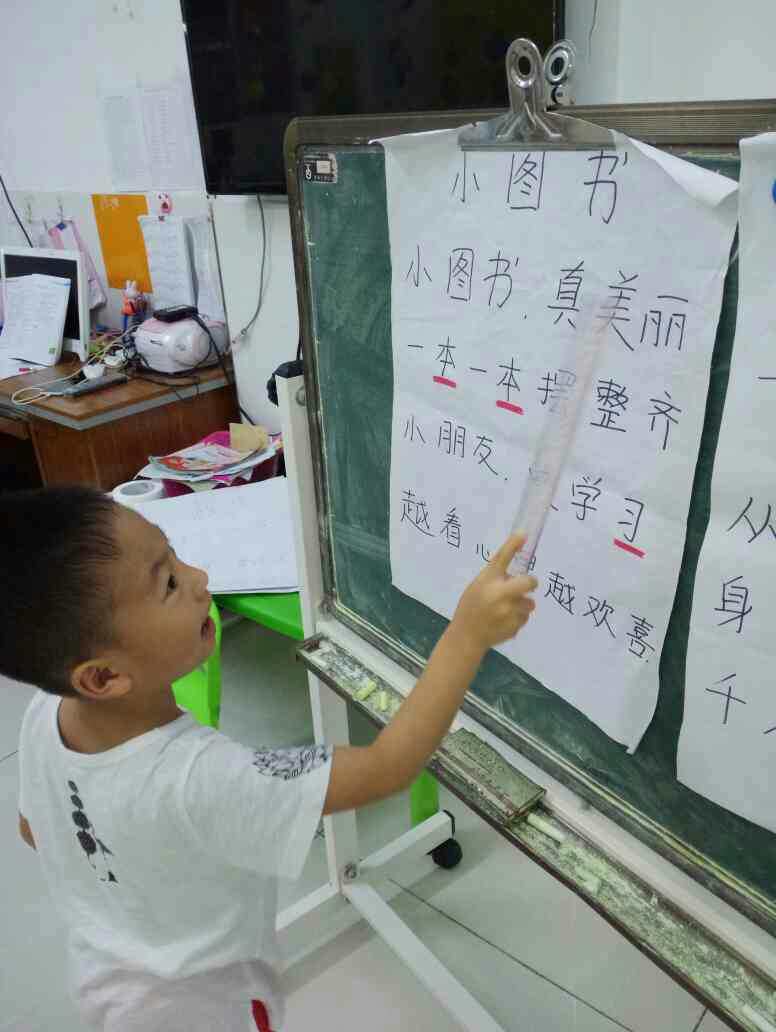 小图书
小图书.真美丽
一本一本摆整齐
小朋友.学习
越看心里越欢喜.
从
身
千